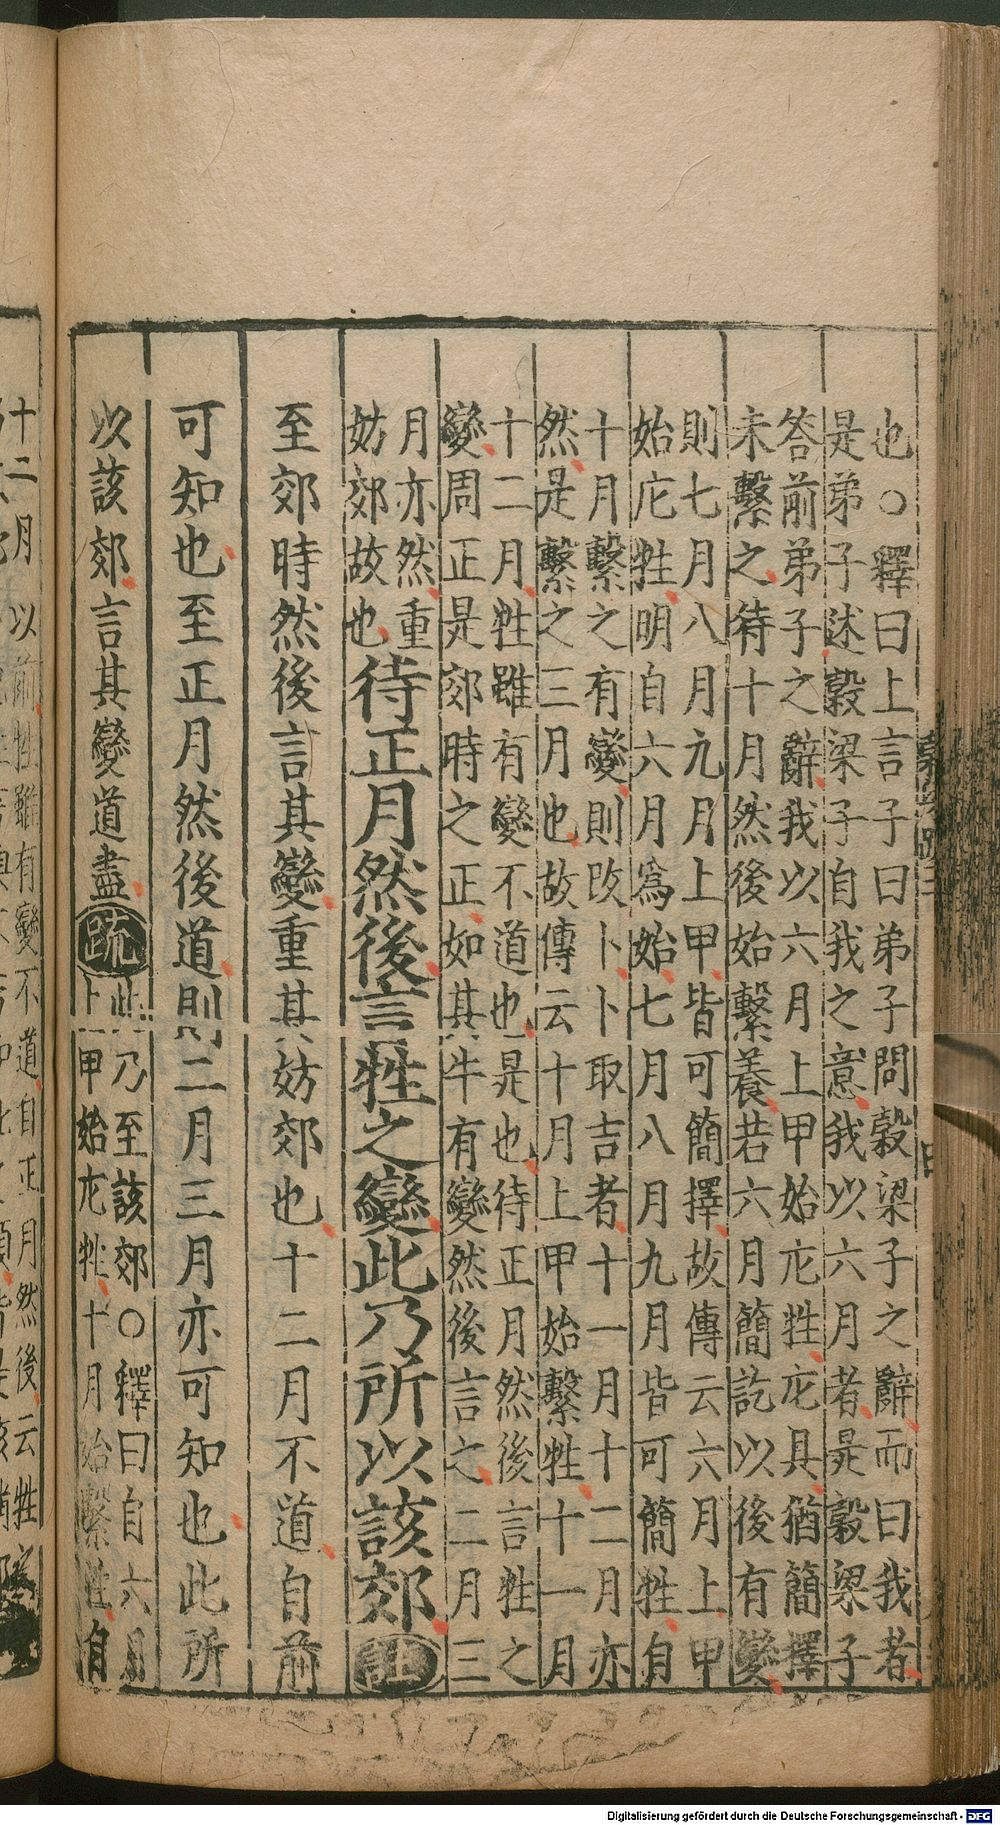 也○釋曰上言子曰弟子問穀梁子之辭而曰我者
是弟子述穀梁子自我之意我以六月者是穀梁子
答前弟子之辭我以六月上甲始庀牲庀具猶簡擇
未繫之待十月然後始繫養若六月簡訖以後有變
則七月八月九月上甲皆可簡擇故傳云六月上甲
始庀牲明自六月爲始七月八月九月皆可簡牲自
十月繫之有變則改卜卜取吉者十一月十二月亦
然是繫之三月也故傳云十月上甲始繫牲十一月
十二月牲雖有變不道也是也待正月然後言牲之
變周正是郊時之正如其牛有變然後言之二月三
月亦然重
妨郊故也待正月然後言牲之變此乃所以該郊註
至郊時然後言其變重其妨郊也十二月不道自前
可知也至正月然後道則二月三月亦可知也此所
以該郊言其變道盡疏
此乃至該郊○釋曰自六月
上甲始庀牲十月始繫牲自
Digitalisierung gefördert durch die Deutsche Forschungsgemeinschaft - DFG